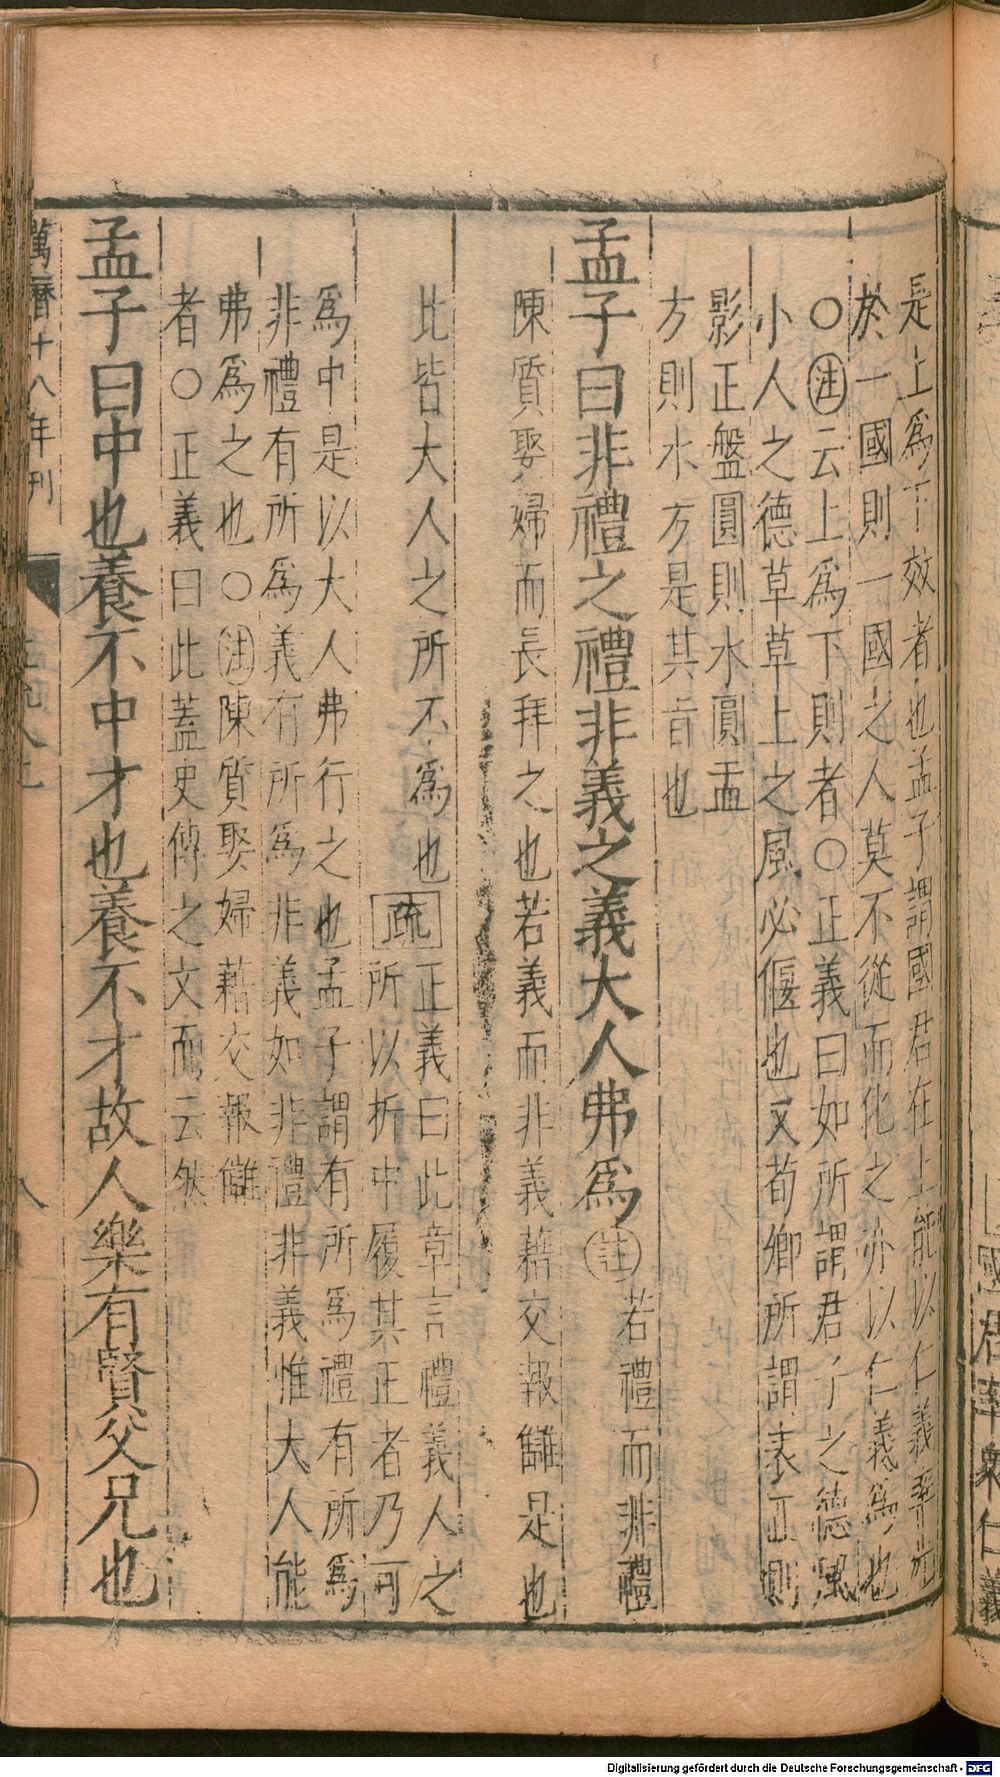 是上爲下效者也孟子謂國君在上能以仁義率先
於一國則一國之人莫不從而化之亦以仁義爲也
○注云上爲下則者○正義曰如所謂君子之德風
小人之德草草上之風必偃也又荀卿所謂表正則
影正盤圓則水圓盂
方則水方是其旨也
孟子曰非禮之禮非義之義大人弗爲註若禮而非禮
陳質娶婦而長拜之也若義而非義藉交報讎是也
此皆大人之所不爲也疏正義曰此章言禮義人之
所以折中履其正者乃可
爲中是以大人弗行之也孟子謂有所爲禮有所爲
非禮有所爲義有所爲非義如非禮非義惟大人能
弗爲之也○注陳質娶婦藉交報讎
者○正義曰此蓋史傳之文而云然
孟子曰中也養不中才也養不才故人樂有賢父兄也
萬曆十八年刊
八
國君率衆仁義
Digitalisierung gefördert durch die Deutsche Forschungsgemeinschaft - DFG